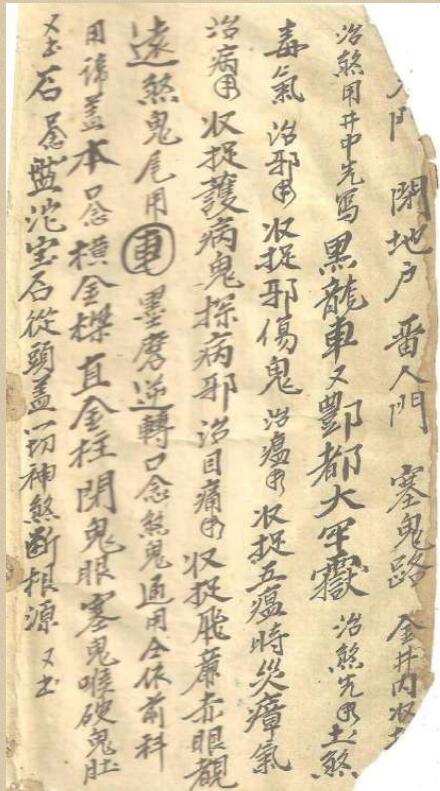 門 閉地户 畨人門 塞鬼路 金井内收
治煞用井中先寫 黑龍車又酆都大罕獄 治煞先用土煞
毒氣 治邪用收捉邪傷鬼 治瘟用收捉五瘟時災瘴氣
治病用收捉護病鬼探病邪 治目痛用收捉飛廉赤眼覩
遠煞鬼尾用車 墨磨逆轉口念煞鬼通用合依前科
用諱盖本 口念 横金樑直金柱閉鬼眼塞鬼喉硬鬼肚
又圡石 念 盤沱宝石從頭盖一切神煞断根源 又圡